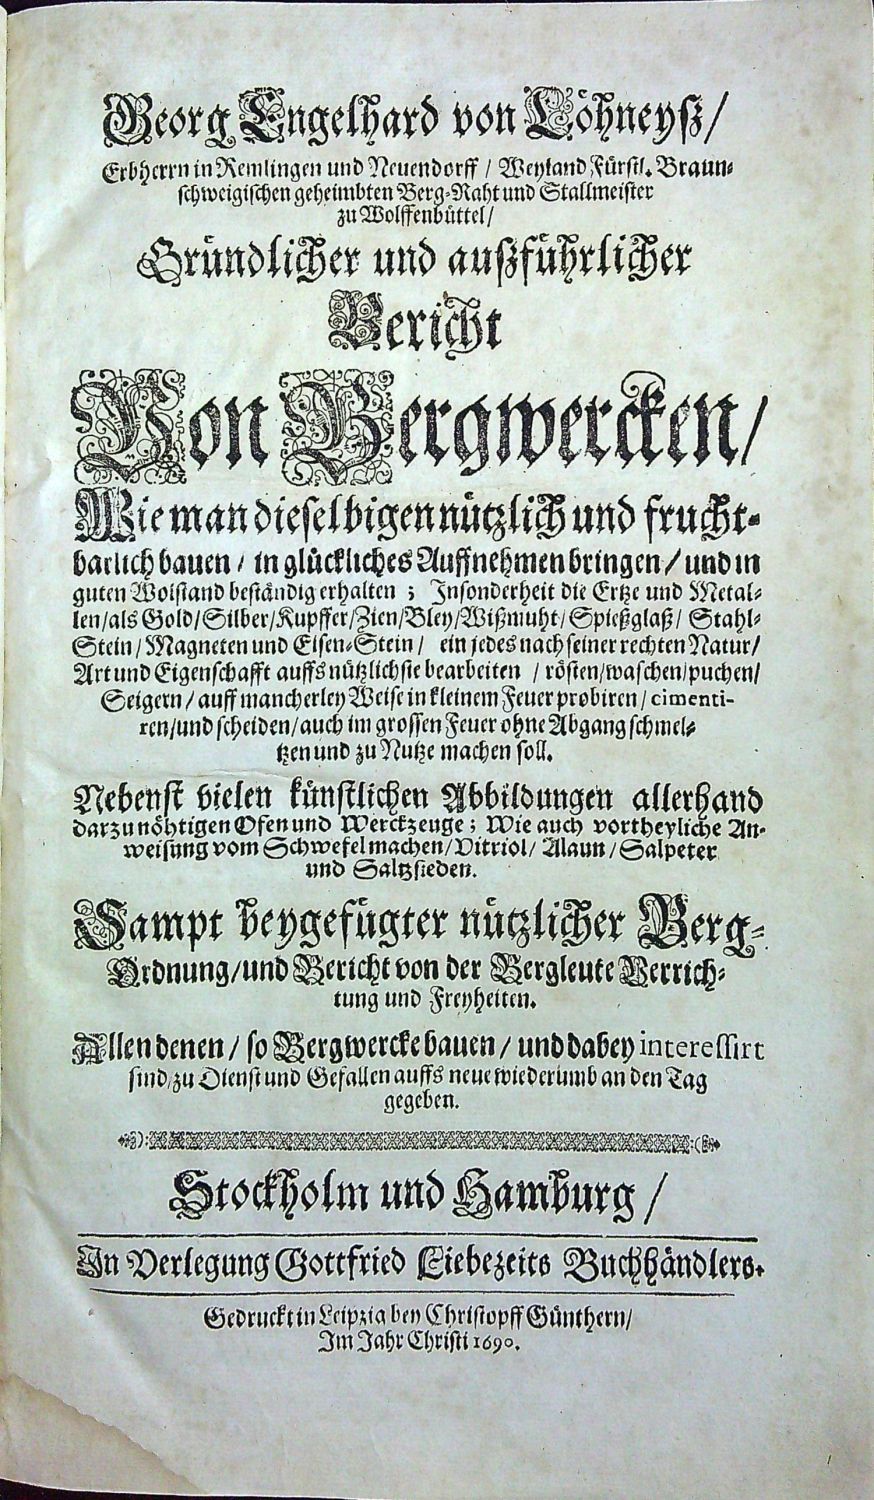 Georg Engelhard von Löhneyß/
Erbherrn in Remlingen und Neuendorff / Weyland Fürstl. Braun-
schweigischen geheimbten Berg-Raht und Stallmeister
zu Wolffenbüttel/
Gründlicher und außführlicher
Bericht
Von Bergwercken/
Wie man dieselbigen nützlich und frucht-
barlich bauen / in glückliches Auffnehmen bringen / und in
guten Wolstand beständig erhalten ; Insonderheit die Ertze und Metal-
len/als Gold/Silber/Kupffer/Zien/Bley/Wißmuht/Spießglaß/ Stahl-
Stein/Magneten und Eisen-Stein/ ein jedes nach seiner rechten Natur/
Art und Eigenschafft auffs nützlichste bearbeiten / rösten/waschen/puchen/
Seigern / auff mancherley Weise in kleinem Feuer probiren / cimenti-
ren/und scheiden/auch im grossen Feuer ohne Abgang schmel-
tzen und zu Nutze machen soll.
Nebenst vielen künstlichen Abbildungen allerhand
darzu nöhtigen Ofen und Werckzeuge ; Wie auch vortheyliche An-
weisung vom Schwefel machen/Vitriol/Alaun/Salpeter
und Saltzsieden.
Sampt beygefügter nützlicher Berg-
Ordnung/und Bericht von der Bergleute Verrich-
tung und Freyheiten.
Allen denen / so Bergwercke bauen / und dabey interessirt
sind/zu Dienst und Gefallen auffs neue wiederumb an den Tag
gegeben.
Stockholm und Hamburg /
In Verlegung Gottfried Liebezeits Buchhändlers.
Gedruckt in Leipzig bey Christopff Günthern/
Im Jahr Christi 1690.